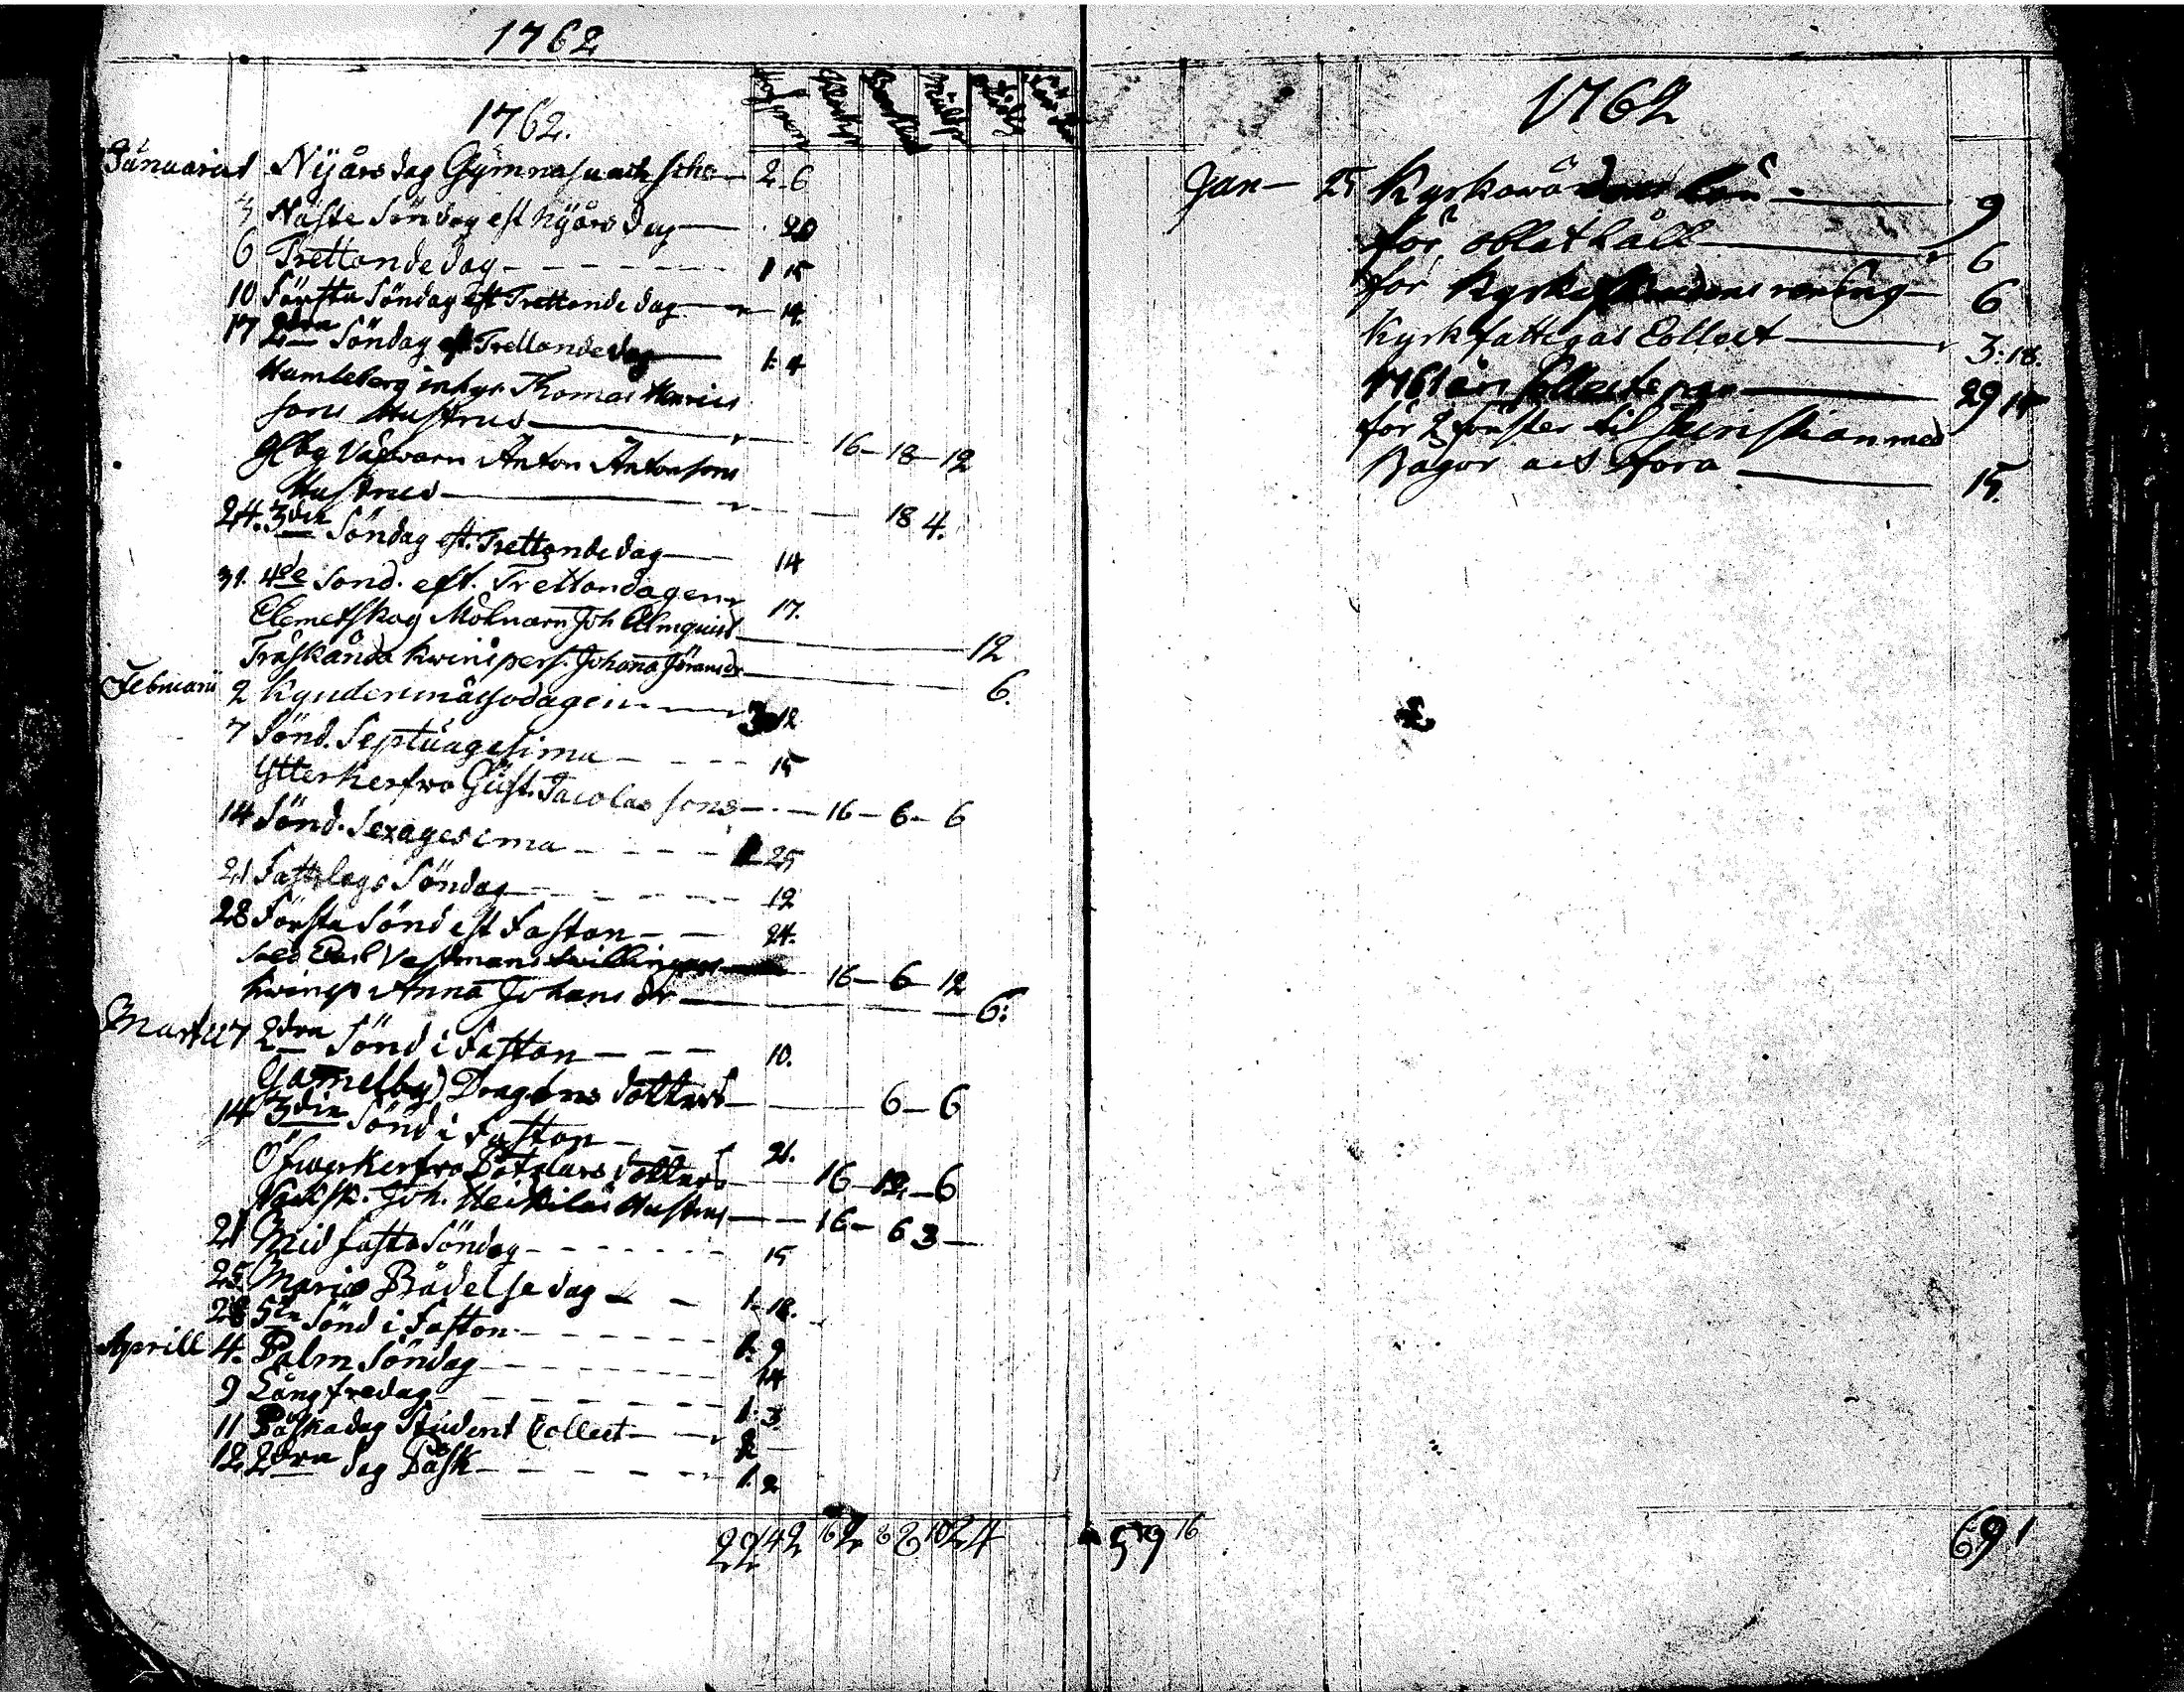 1762
1762.
Januarius Nyårsdag Gymnas. och scho— 2-6
3 Näste Söndag eft Nyårsdag — 20
6 Trettondedag - - - - - 1 15
10 Första Söndag eft Trettondedag — 14.
17 2dra Söndag eft Trettondedag — 1: 4
Humleberg inhys Thomas Henrics
sons Hustrus — 16-18-12
Glby Anton Antonsons
Hustrus — 18 4.
24. 3die Söndag eft. Trettondedag — 14
31. 4de Sönd. eft. Trettondagen 17.
Clemetskog Mölnarn Joh Almquist — 12
Träskända kwinspers. Johanna Jöransdr — 6.
Februarii 2 Kyndersmässodagen — 3 12
7 Sönd. Septuagesima - - - 15
Ytterkerfvo Gust. Jacobssons — 16-6-6
14 Sönd. Sexagesima - - - - 1 25
21 Fastlags Söndag - - - 12
28 Första Sönd eft Faston - — 24.
Sold Carl Vestmans twillingar — 16-6-12
kwinsp Anna Johansdr — 6:
Martii 7 2dra Sönd i Faston - - — 10.
Gamelby Dragons dotters — 6-6
14 3die Sönd i Faston - — 21.
Öfwerkerfvo dotters — 16-12-6
Joh. Heikiläs Hustrus — 16-6 3-
21 Midfasto Söndag - - - - - - 15
25 Mariæ Bådelsedag - - 1-18.
28 5te Sönd i Faston - - - - - - 1. 9
Aprill 4. Palm Söndag - - - - - - 14
9 Långfredag - - - - - - 1: 3
11 Påskadag Student Collect - — 2 -
12 2dra dag Påsk - - - - — 1. 2
22 14 2 16 2 6 2 10 24 59 16
1762
Jan— 25 Kyrkowärdens lön — 9
för oblathåll — 6
för Kyrk rening — 6
Kyrkfattigas Collect — 3:18.
1761 års — 29 14
för 2 fönster til Sacristian med
Bagor — 15
69 1